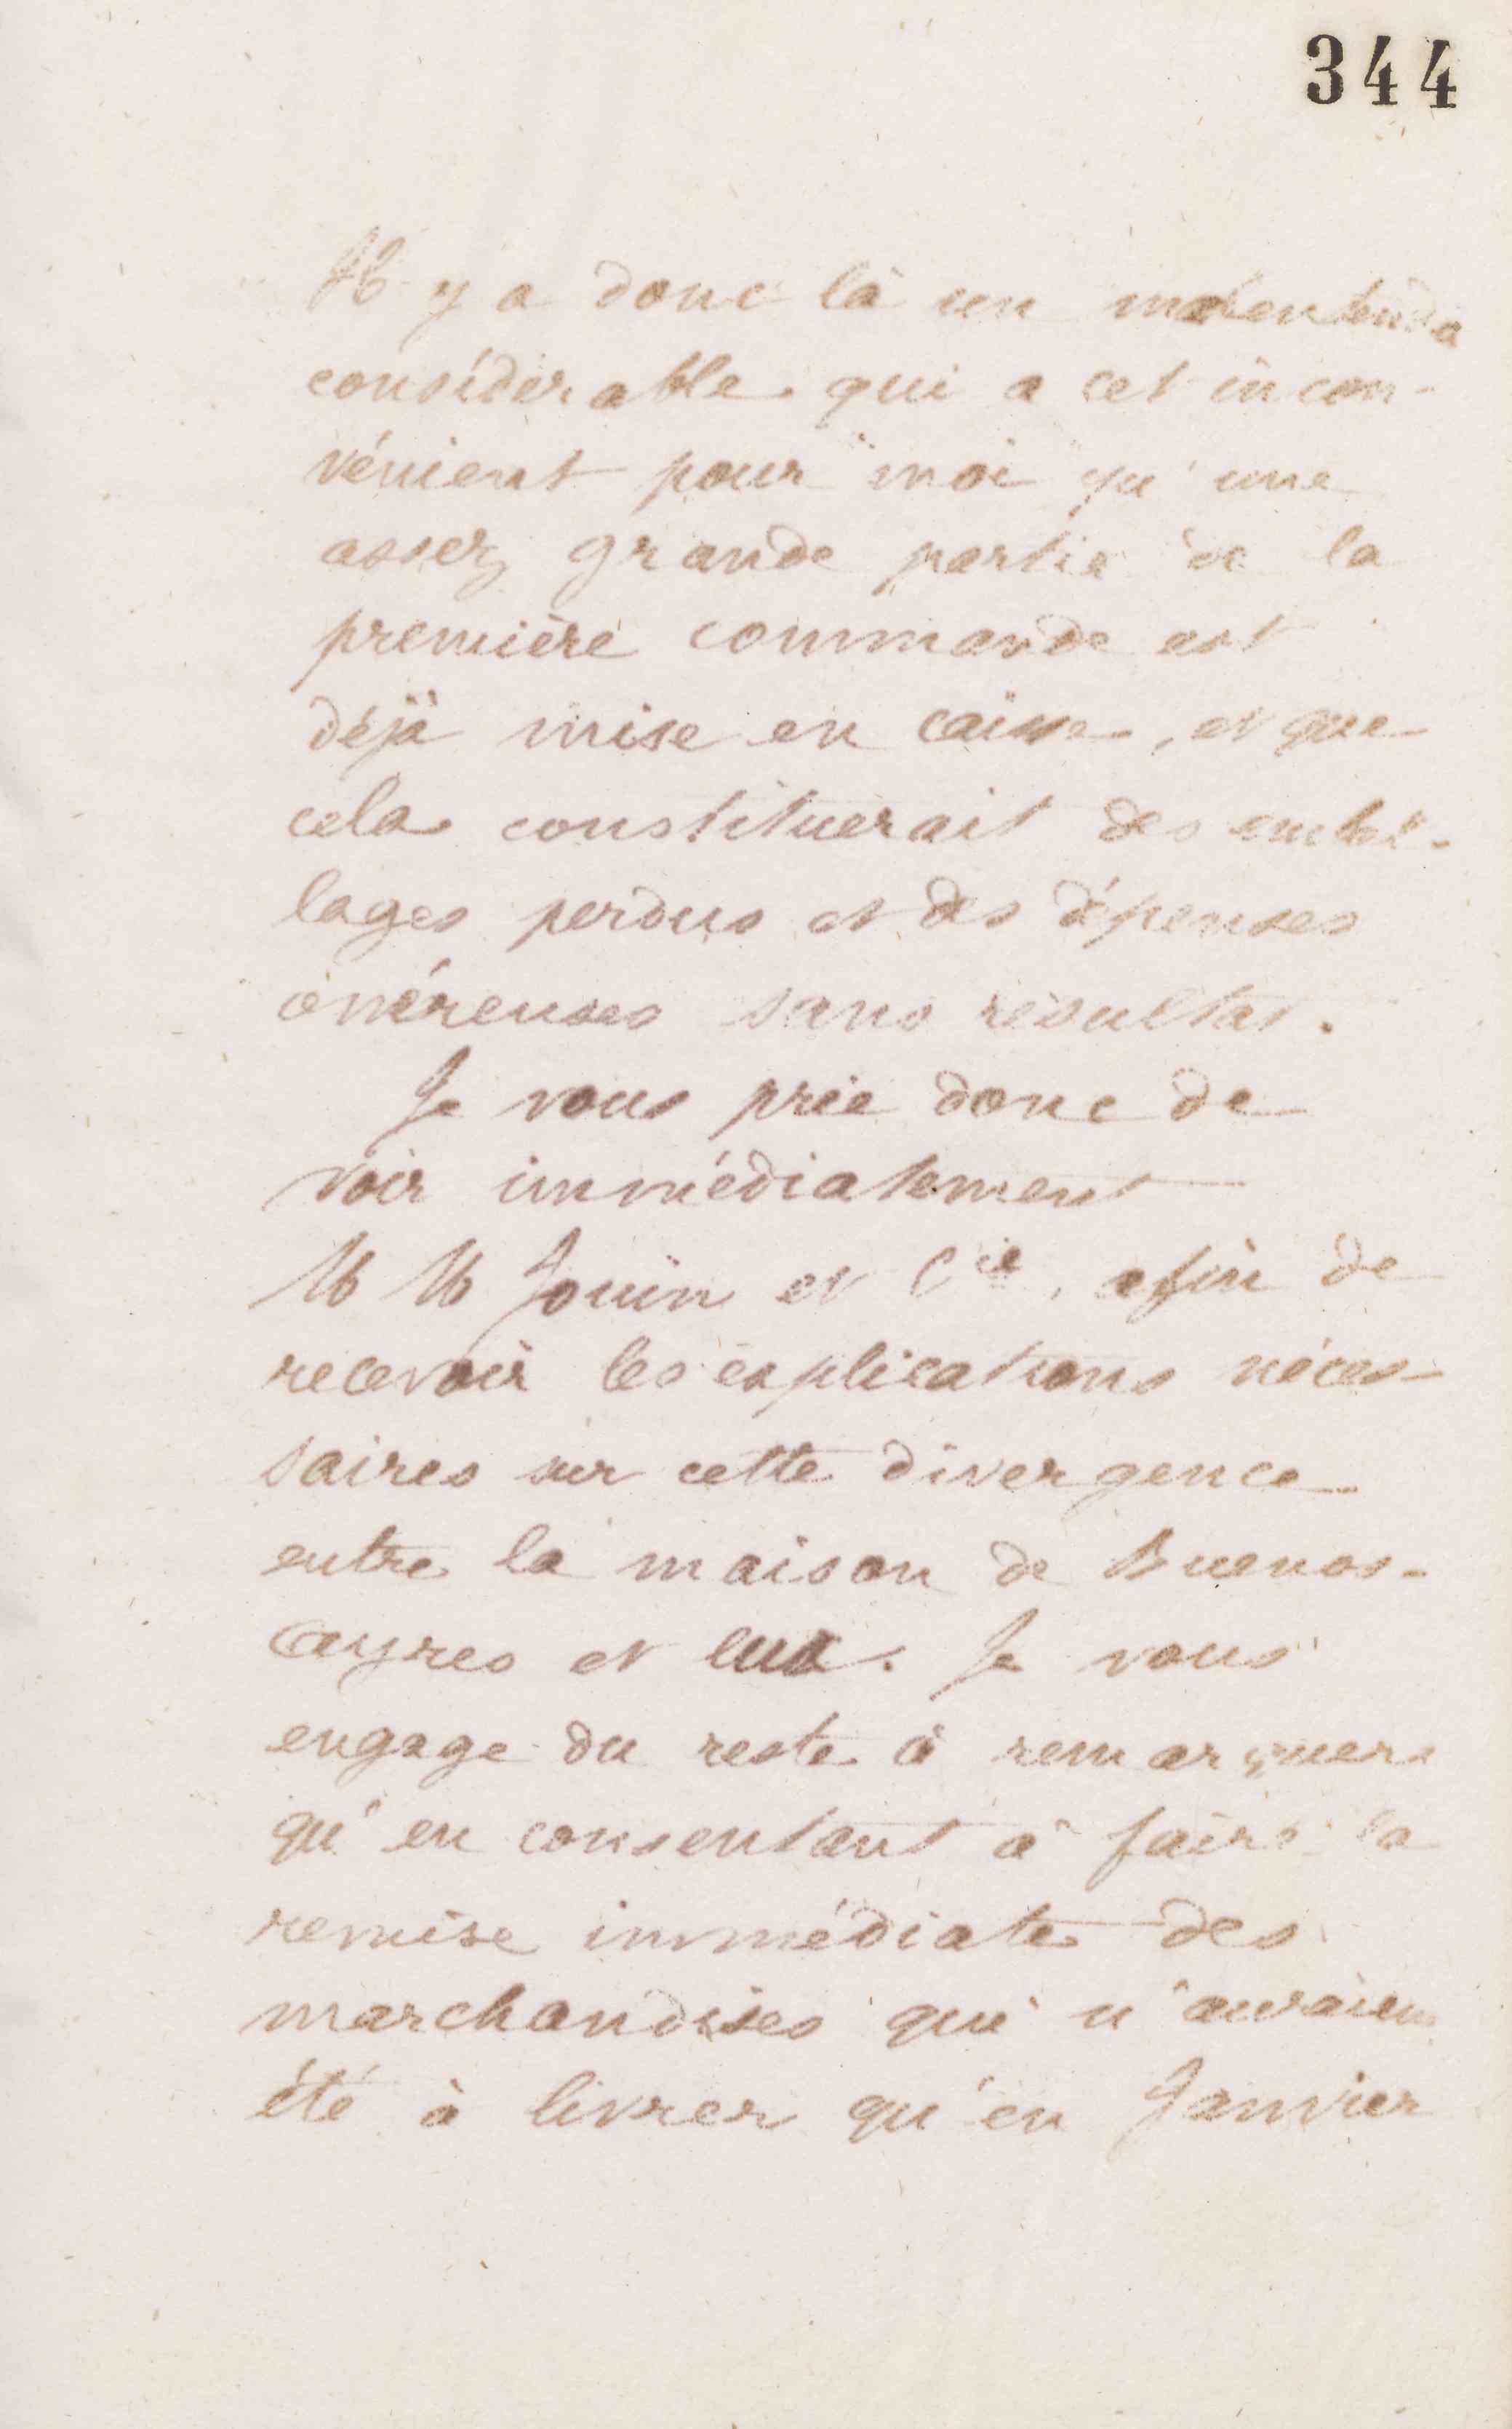 344
Il y a donc là un malentendu
considérable qui a cet incon-
vénient pour moi qu'une
assez grande partie de la
première commande est
déjà mise en caisse, et que
cela constituerait des embal-
lages perdus et des dépenses
onéreuses sans résultat.
Je vous prie donc de
voir immédiatement
MM Jouin et Cie, afin de
recevoir les explications néces-
saires sur cette divergence
entre la maison de Buenos-
Ayres et lui. Je vous
engage du reste à remarquer
qu'en consentant à faire la
remise immédiate des
marchandises qui n'auraient
été à livrer qu'en Janvier